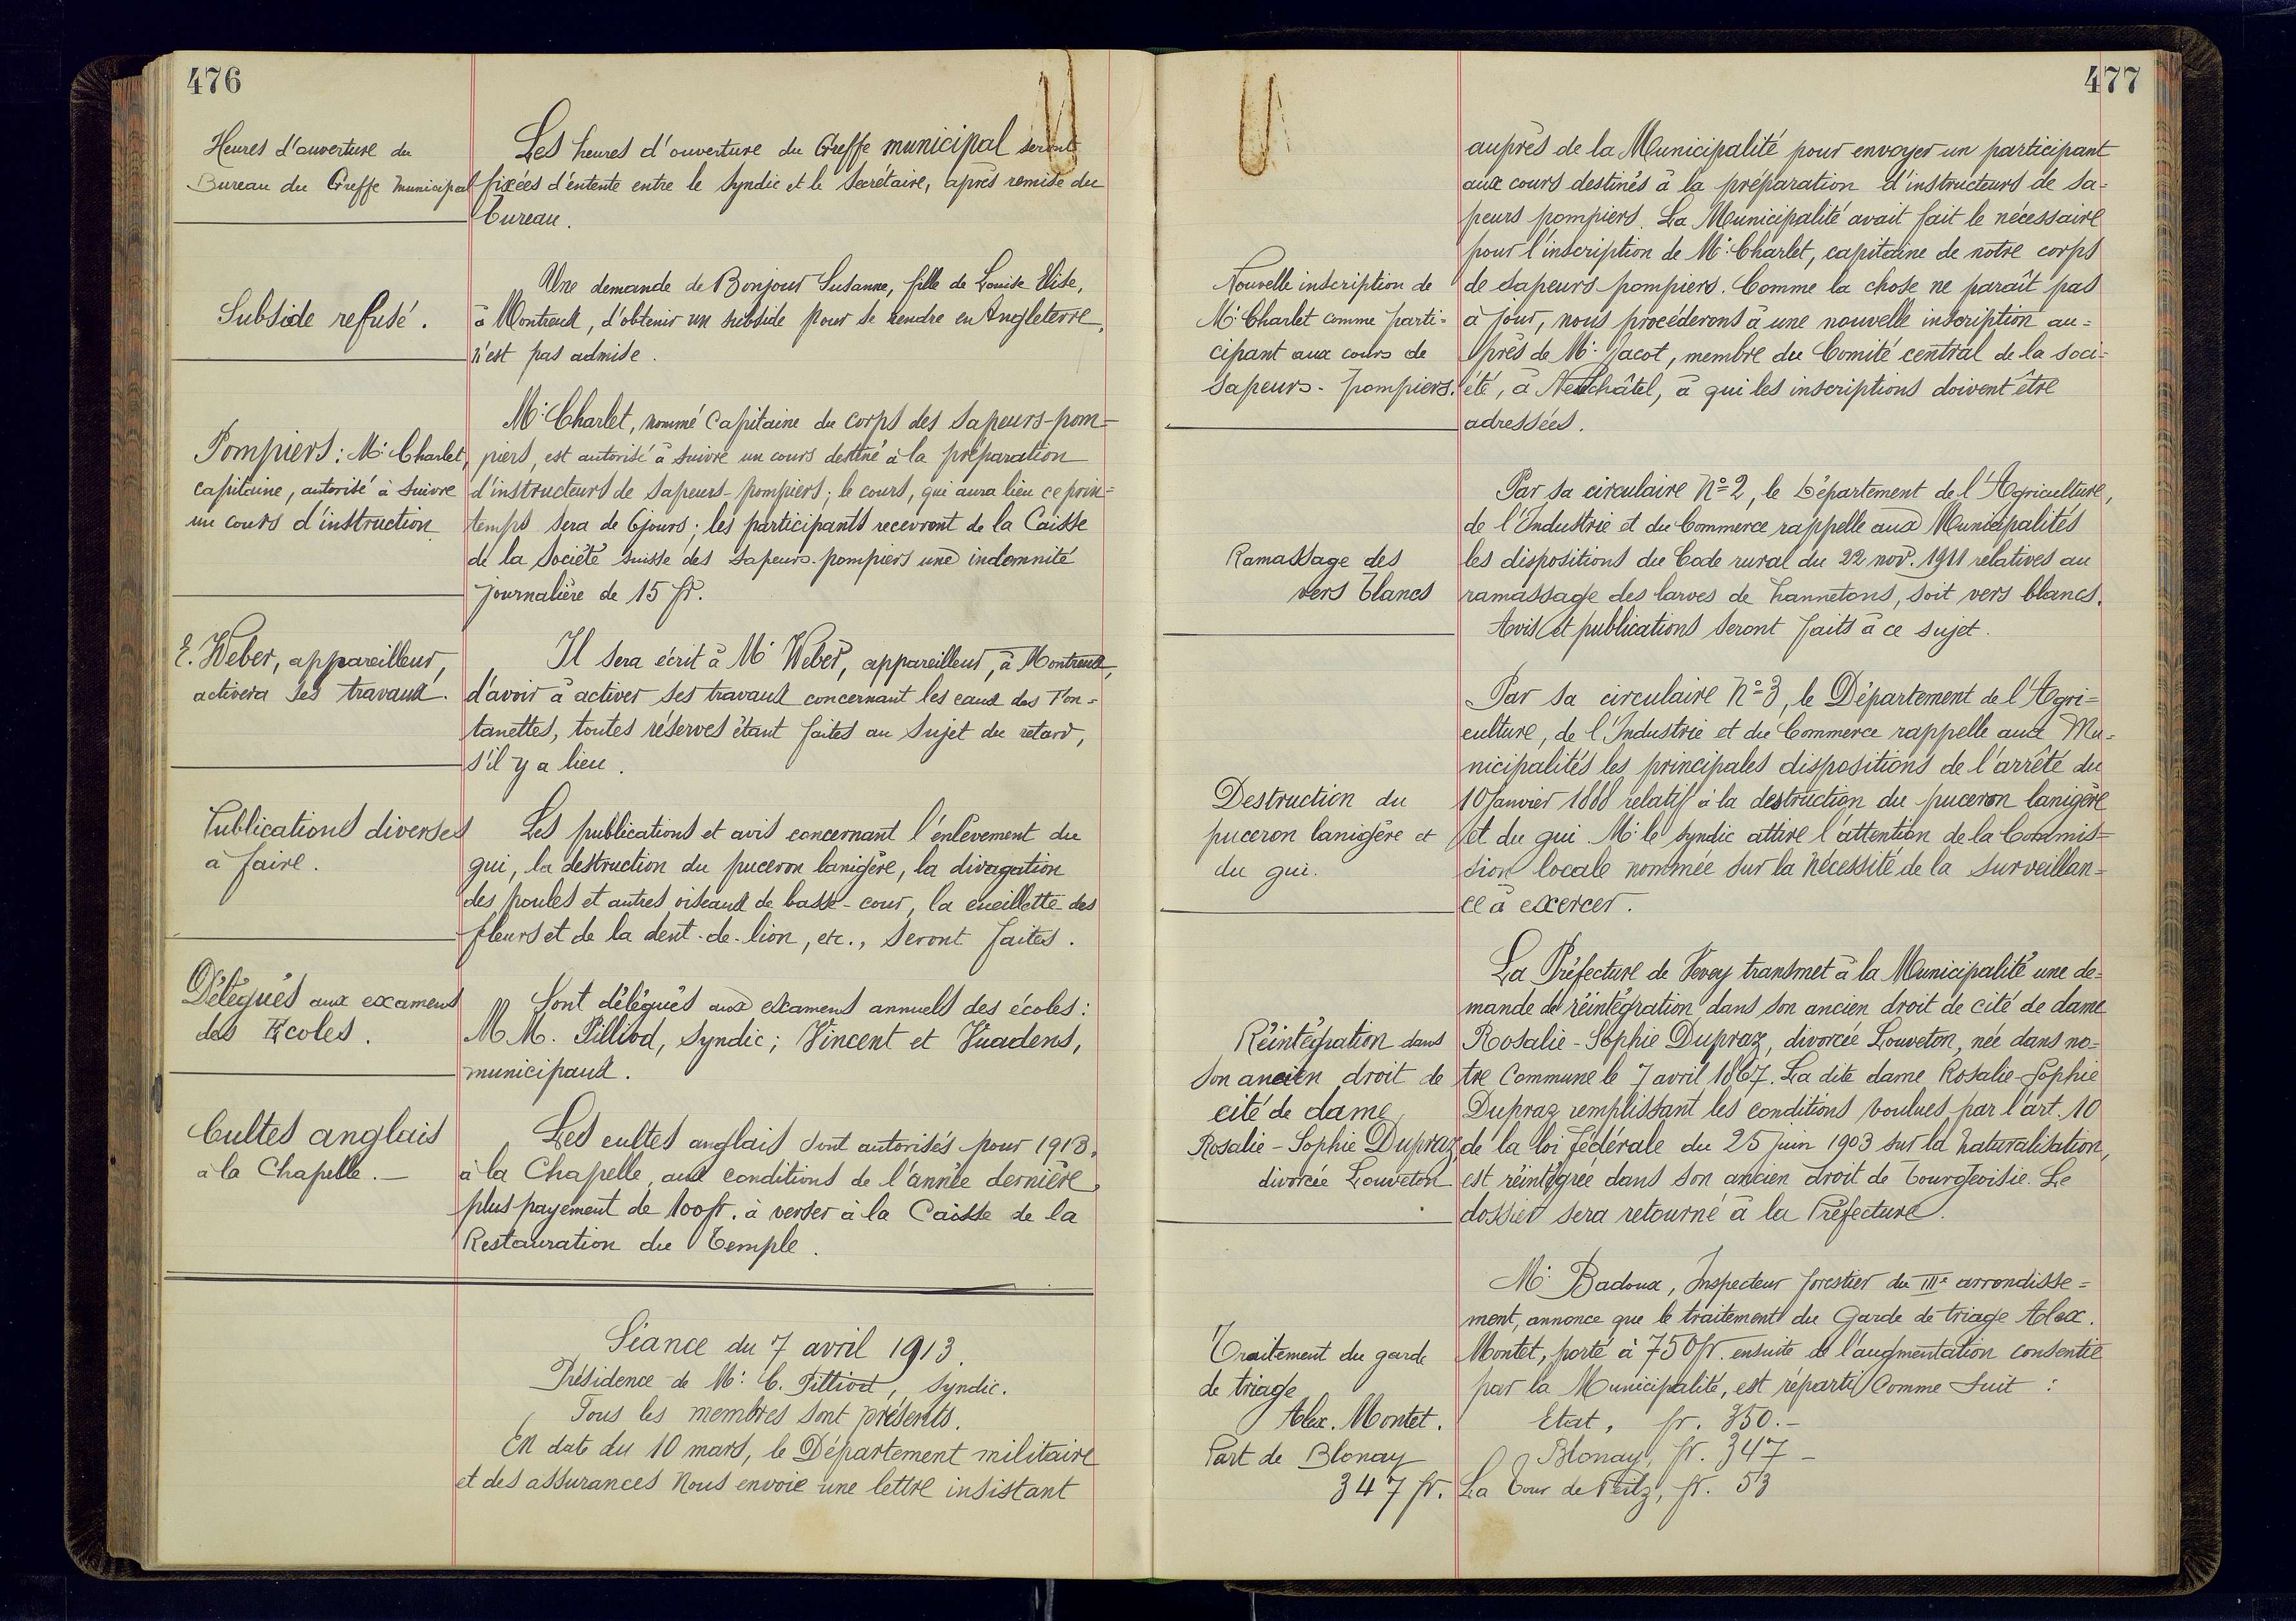 476
Heures d'ouverture du
Bureau du Greffe Municipal
Les heures d'ouverture du Greffe municipal seront
fixées d'entente entre le Syndic et le Secrétaire, après remise du
bureau.
Subside refusé.
Une demande de Bonjour Susanne, fille de Louise Elise,
à Montreux, d'obtenir un subside pour se rendre en Angleterre,
n'est pas admise.
Pompiers: Mr Charlet,
capitaine, autorisé à suivre
un cours d'instruction
Mr Charlet, nommé Capitaine du corps des Sapeurs-pom=
piers, est autorisé à suivre un cours destiné à la préparation
d'instructeurs de Sapeurs-pompiers; le cours, qui aura lieu ce prin=
temps sera de 6 jours; les participants recevront de la Caisse
de la Société suisse des sapeurs-pompiers une indemnité
journalière de 15 fr.
E. Weber, appareilleur,
activera ses travaux.
Il sera écrit à Mr Weber, appareilleur, à Montreux,
d'avoir à activer ses travaux concernant les eaux des Fon=
tanettes, toutes réserves étant faites au sujet du retard,
s'il y a lieu.
Publications diverses
à faire.
Les publications et avis concernant l'enlèvement du
gui, la destruction du puceron lanigère, la divagation
des poules et autres oiseaux de basse-cour, la cueillette des
fleurs et de la dent-de-lion, etc., seront faites.
Délégués aux examens
des Ecoles.
Sont délégués aux examens annuels des écoles:
M M. Pilliod, Syndic; Vincent et Vuadens,
municipaux.
Cultes anglais
à la Chapelle.—
Les cultes anglais sont autorisés pour 1913,
à la Chapelle, aux conditions de l'année dernière,
plus payement de 100 fr. à verser à la Caisse de la
Restauration du Temple.
Séance du 7 avril 1913.
Présidence de Mr: C. Pilliod, Syndic.
Tous les membres sont présents.
En date du 10 mars, le Département militaire
et des assurances nous envoie une lettre insistant
477
auprès de la Municipalité pour envoyer un participant
aux cours destinés à la préparation d'instructeurs de sa=
peurs pompiers. La Municipalité avait fait le nécessaire
pour l'inscription de Mr: Charlet, capitaine de notre corps
Nouvelle inscription de
Mr Charlet comme parti=
cipant aux cours de
sapeurs-pompiers.
de sapeurs-pompiers. Comme la chose ne paraît pas
à jour, nous procéderons à une nouvelle inscription au=
près de Mr: Jacot, membre du Comité central de la soci=
été, à Neuchâtel, à qui les inscriptions doivent être
adressées.
Ramassage des
vers blancs
Par sa circulaire No 2, le Département de l'Agriculture,
de l'Industrie et du Commerce rappelle aux Municipalités
les dispositions du Code rural du 22 nov. 1911 relatives au
ramassage des larves de hannetons, soit vers blancs.
Avis et publications seront faits à ce sujet.
Destruction du
puceron lanigère et
du gui.
Par sa circulaire No 3, le Département de l'Agri=
culture, de l'Industrie et du Commerce rappelle aux Mu=
nicipalités les principales dispositions de l'arrêté du
10 Janvier 1888 relatif à la destruction du puceron lanigère
et du gui. Mr le Syndic attire l'attention de la Commis=
sion locale nommée sur la nécessité de la surveillan=
ce à exercer.
Réintégration dans
son ancien droit de
cité de dame
Rosalie-Sophie Dupraz,
divorcée Louveton.
La Préfecture de Vevey transmet à la Municipalité une de=
mande de réintégration dans son ancien droit de cité de dame
Rosalie-Sophie Dupraz, divorcée Louveton, née dans no=
tre Commune le 7 avril 1867. La dite dame Rosalie-Sophie
Dupraz remplissant les conditions voulues par l'art. 10
de la loi fédérale du 25 juin 1903 sur la Naturalisation,
est réintégrée dans son ancien droit de bourgeoisie. Le
dossier sera retourné à la Préfecture.
Traitement du garde
de triage
Alex. Montet.
Part de Blonay
347 fr.
Mr: Badoux, Inspecteur forestier du IIIe arrondisse=
ment, annonce que le traitement du Garde de triage Alex.
Montet, porté à 750 fr. ensuite de l'augmentation consentie
par la Municipalité, est réparti comme suit:
Etat, fr. 350.-
Blonay, fr. 347 -
La Tour de Peilz, fr. 53